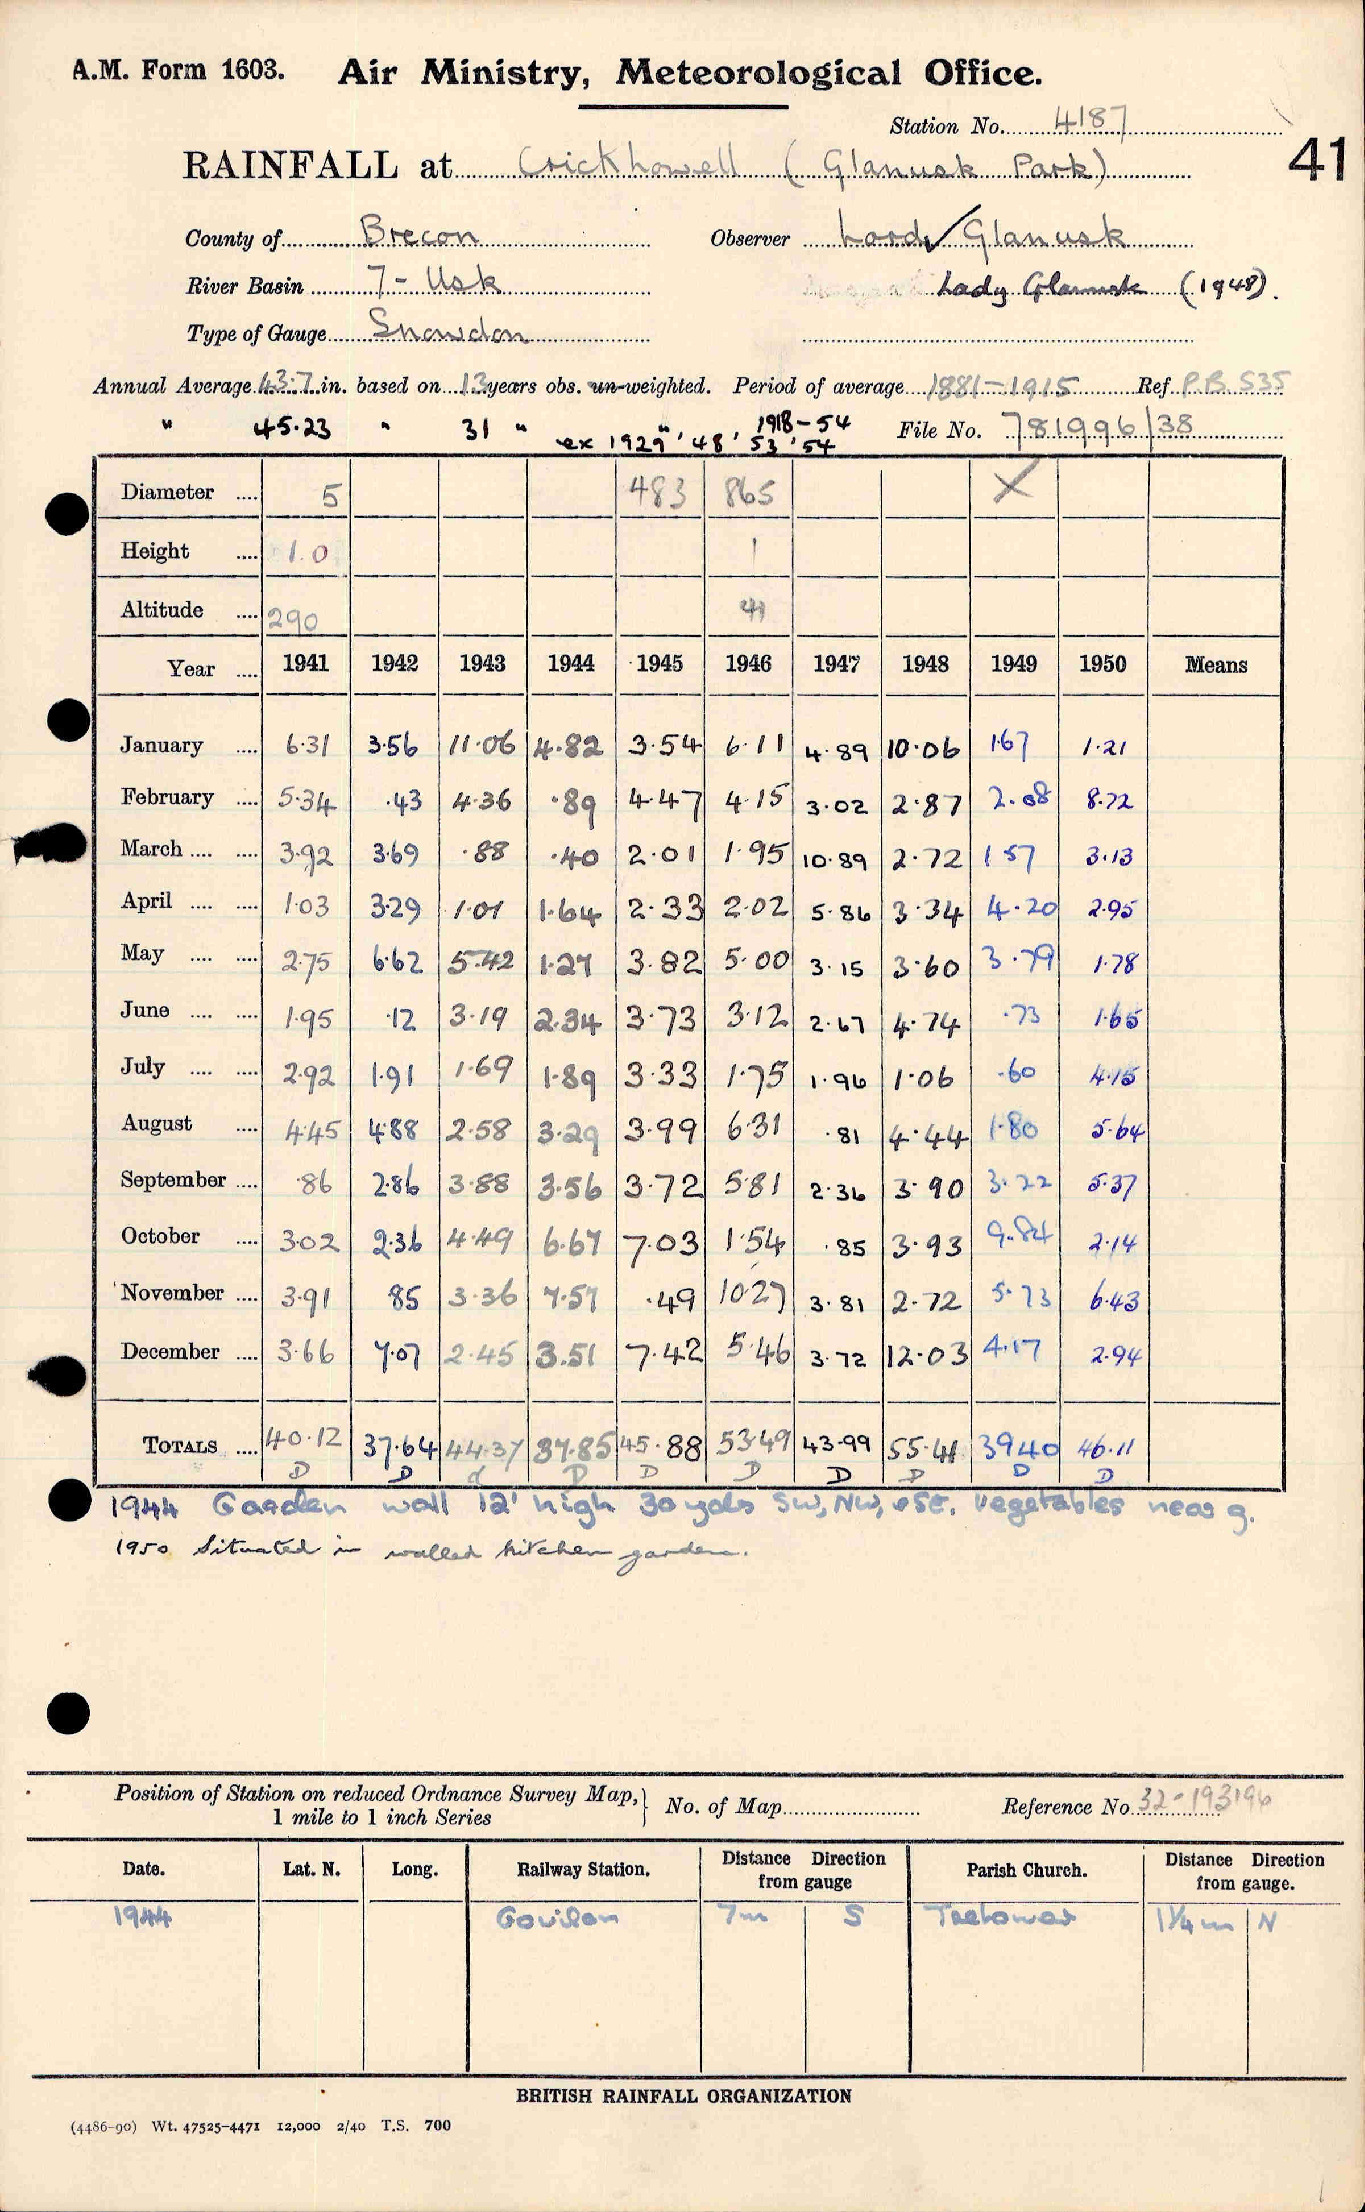 A.M. Form 1603. Air Ministry, Meteorological Office.
Station No. 4187
41
RAINFALL at Crickhowell (Glanusk Park)
County of Brecon Observer Lord Glanusk
River Basin 7 - Usk Lady Glanusk (1948).
Type of Gauge Snowdon
Annual Average 43.7 in. based on 13 years obs. un-weighted. Period of average 1881-1915 Ref P.B. S35
" 45.23 " 31 " " 1918-54 File No. 781996/38
ex 1929, '48, '53 '54
Diameter .... 5 483 865 X
Height .... 1.0 1
Altitude .... 290
Year .... 1941 1942 1943 1944 1945 1946 1947 1948 1949 1950 Means
January .... 6.31 3.56 11.06 4.82 3.54 6.11 4.89 10.06 1.67 1.21
February .... 5.34 .43 4.36 .89 4.47 4.15 3.02 2.87 2.08 8.72
March .... .... 3.92 3.69 .88 .40 2.01 1.95 10.89 2.72 1.57 3.13
April .... .... 1.03 3.29 1.01 1.64 2.33 2.02 5.86 3.34 4.20 2.95
May .... .... 2.75 6.62 5.42 1.27 3.82 5.00 3.15 3.60 3.79 1.78
June .... .... 1.95 .12 3.19 2.34 3.73 3.12 2.67 4.74 .73 1.65
July .... .... 2.92 1.91 1.69 1.89 3.33 1.75 1.96 1.06 .60 4.15
August .... 4.45 4.88 2.58 3.29 3.99 6.31 .81 4.44 1.80 5.64
September .... .86 2.86 3.88 3.56 3.72 5.81 2.36 3.90 3.22 5.37
October .... 3.02 2.36 4.49 6.67 7.03 1.54 .85 3.93 9.84 2.14
November .... 3.91 85 3.36 7.57 .49 10.27 3.81 2.72 5.73 6.43
December .... 3.66 7.07 2.45 3.51 7.42 5.46 3.72 12.03 4.17 2.94
TOTALS .... 40.12 37.64 44.37 37.85 45.88 53.49 43.99 55.41 39.40 46.11
D D d D D D D D D D
1944 Garden wall 12' high 30 yds SW, NW, & SE. Vegetables near g.
1950 Situated in walled kitchen garden.
Position of Station on reduced Ordnance Survey Map, 1 mile to 1 inch Series } No. of Map Reference No 32-193196
Date. Lat. N. Long. Railway Station. Distance from gauge Direction Parish Church. Distance Direction from gauge.
1944 Govilon 7m S Tretower 1¼m N
BRITISH RAINFALL ORGANIZATION
(4486-90) Wt. 47525-4471 12,000 2/40 T.S. 700